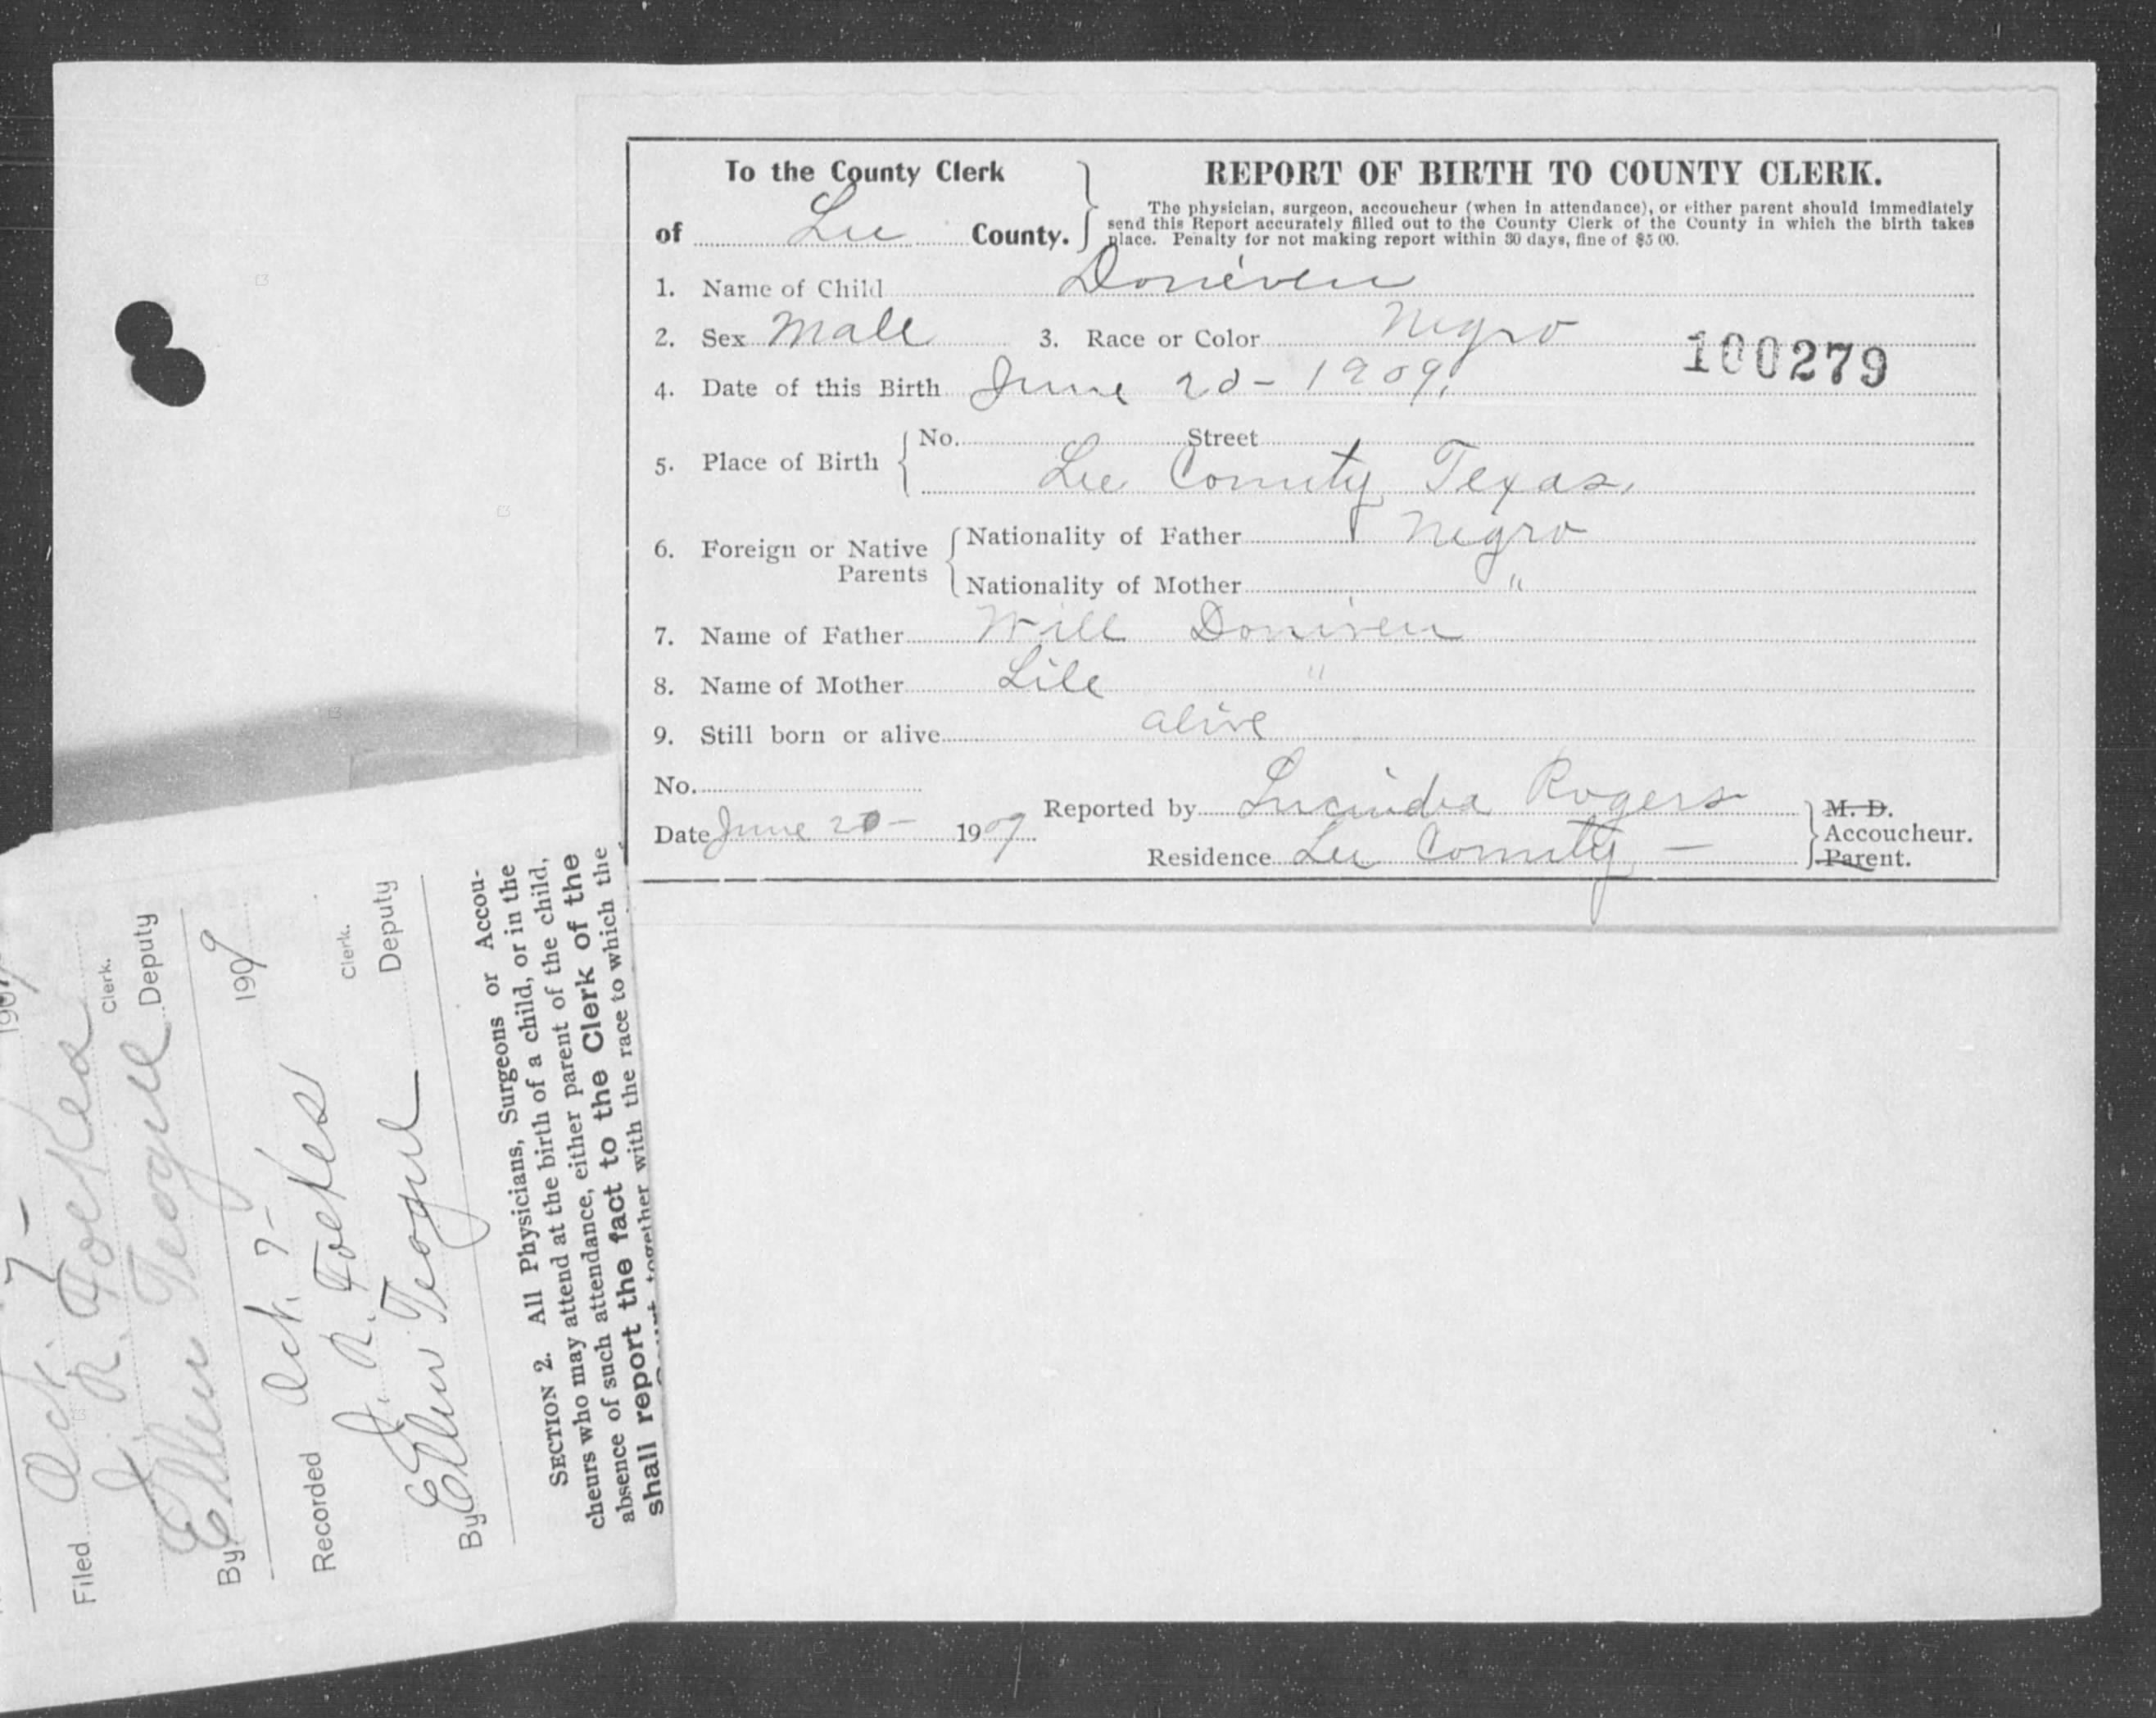 To the County Clerk
of Lee County.
REPORT OF BIRTH TO COUNTY CLERK.
The physician, surgeon, accoucheur (when in attendance), or either parent should immediately
send this Report accurately filled out to the County Clerk of the County in which the birth takes
place. Penalty for not making report within 30 days, fine of $5 00.
1. Name of Child Doniven
2. Sex Male 3. Race or Color Negro
100279
4. Date of this Birth June 20 - 1909.
5. Place of Birth No. Street
Lee County Texas.
6. Foreign or Native Parents
Nationality of Father Negro
Nationality of Mother "
7. Name of Father Will Doniven
8. Name of Mother Lile "
9. Still born or alive alive
No.
Date June 20 - 1909
Reported by Lucindia Rogers
Residence Lee County -
M. D.
Accoucheur.
Parent.
Filed Oct. 7 - 190
Clerk.
By Ellen Teague Deputy
Recorded Oct. 9 - 1909
Clerk.
By Ellen Teague Deputy
SECTION 2. All Physicians, Surgeons or Accou-
cheurs who may attend at the birth of a child, or in the
absence of such attendance, either parent of the child,
shall report the fact to the Clerk of the
together with the race to which the